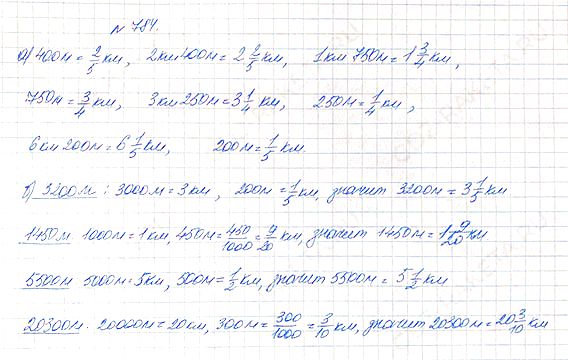 № 784.
а) 400м = 2/5 км, 2км 400м = 2 2/5 км, 1км 750м = 1 3/4 км,
750м = 3/4 км, 3км 250м = 3 1/4 км, 250м = 1/4 км,
6км 200м = 6 1/5 км, 200м = 1/5 км.
б) 3200м : 3000м = 3км, 200м = 1/5 км, значит 3200м = 3 1/5 км
1450м 1000м = 1км, 450м = 450/1000 = 9/20 км, значит 1450м = 1 9/20 км
5500м 5000м = 5км, 500м = 1/2 км, значит 5500м = 5 1/2 км
20300м. 20000м = 20км, 300м = 300/1000 = 3/10 км, значит 20300м = 20 3/10 км